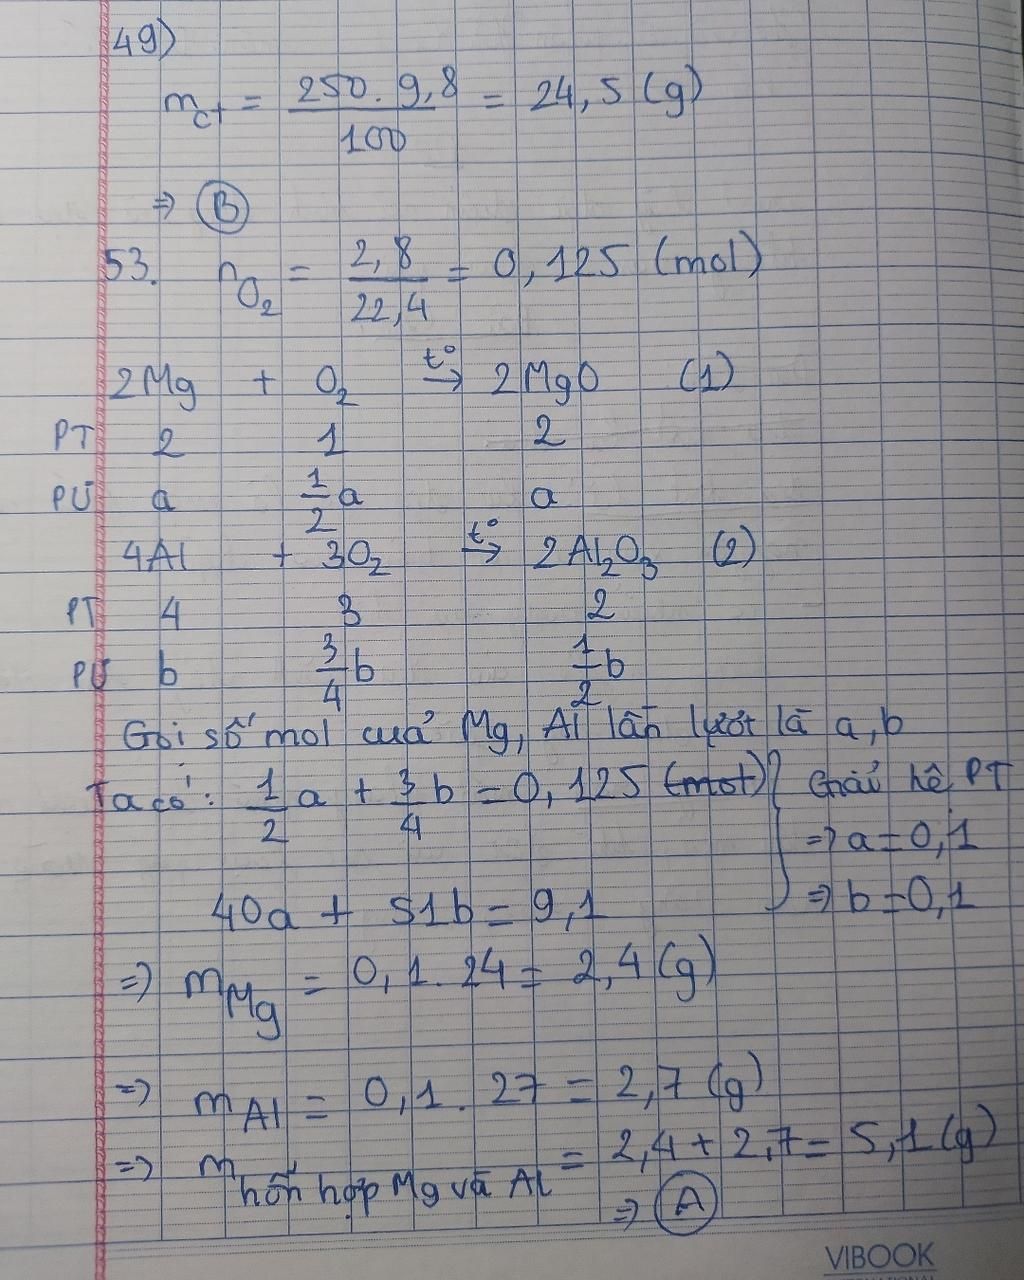 49)
m_ct = 250. 9,8 / 100 = 24,5 (g)
⇒ B
53. n_O₂ = 2,8 / 22,4 = 0,125 (mol)
2Mg + O₂ t°→ 2MgO (1)
PT 2 1 2
PƯ a 1/2 a a
4Al + 3O₂ t°→ 2Al₂O₃ (2)
PT 4 3 2
PƯ b 3/4 b 1/2 b
Gọi số mol cuả Mg, Al lần lượt là a, b
Ta có: 1/2 a + 3/4 b = 0,125 (mol) } Giải hệ PT
⇒ a = 0,1
40a + 51b = 9,1 ⇒ b = 0,1
⇒ m_Mg = 0,1. 24 = 2,4 (g)
⇒ m_Al = 0,1. 27 = 2,7 (g)
⇒ m_hỗn hợp Mg và Al = 2,4 + 2,7 = 5,1 (g)
⇒ A
VIBOOK